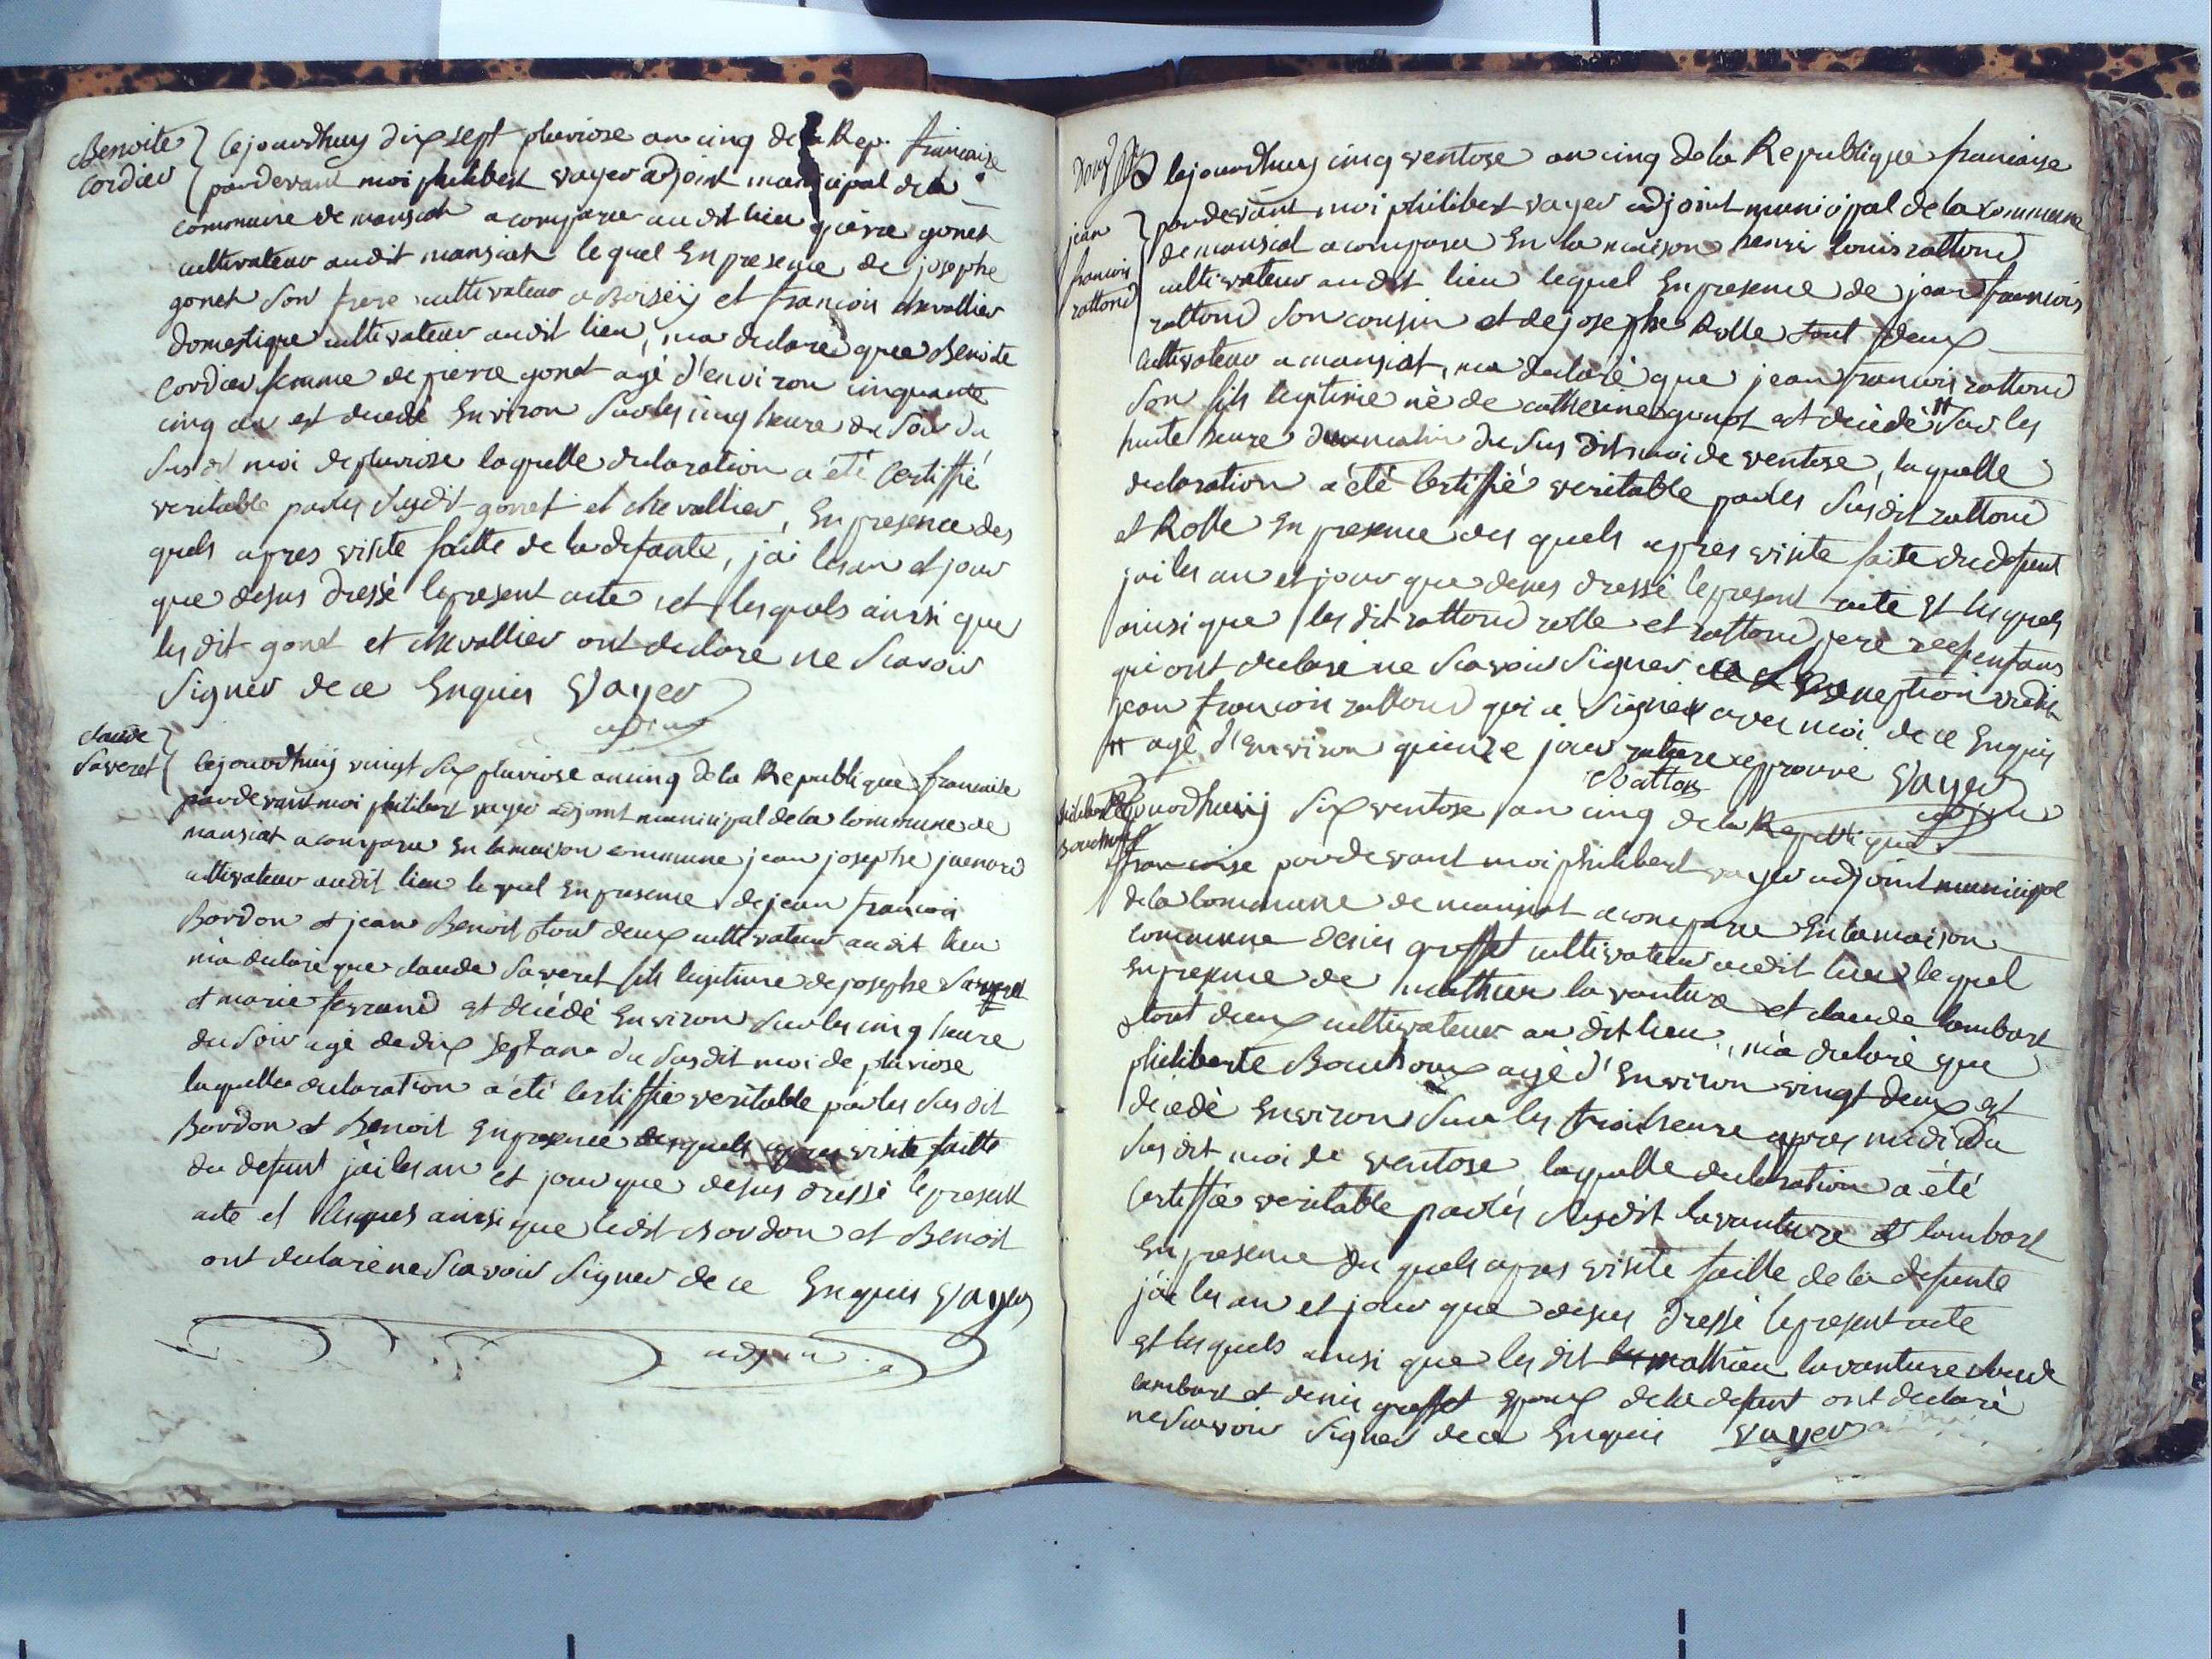 Benoite
Cordier
Cejourdhuy dix sept pluviose an cinq de la Rep. francaise
pardevant moi philibert vayer adjoint municipal de la
commune de mansiat a comparu audit lieu pierre gonet
cultivateur audit mansiat lequel En presence de josephe
gonet son frere cultivateur a Boiseÿ et francois chevallier
domestique cultivateur audit lieu, ma declaré que Benoite
Cordier femme de pierre gonet agé d'environ cinquante
cinq an est decedé Environ sur les cinq heure du soir du
susdit moi de pluviose laquelle declaration a été Certiffié
veritable par les susdit gonet et chevallier, En presence des
quels apres visite faitte de la defante, j'ai les an et jour
que desus dressé le present acte, et lesquels ainsi que
les dit gonet et chevallier ont declare ne scavoir
signer de ce Enquis Vayer
adjoint
claude
Saveret
Cejourdhuij vingt six pluviose an cinq de la Republique francaise
pardevant moi philibert vayer adjoint municipal de la Commune de
mansiat a comparu En la maison commune jean josephe
cultivateur audit lieu lequel En presence de jean francois
Bordon et jean Benoit tout deux cultivateur audit lieu
m'a declaré que claude Saveret fils legitime de josephe Saveret
et marie ferrand est décédé Environ sur les cinq heure
du soir agé de dix sept ans du susdit moi de pluviose
laquelle declaration a été certiffié veritable par les susdit
Bordon et Benoit En presence desquels apres visite faitte
du defunt j'ai les an et jour que desus dressé le present
acte et lesquels ainsi que ledit Bordon et Benoit
ont declaré ne scavoir signer de ce Enquis Vayer
adjoint
jean
francois
rattond
Cejourdhuy cinq ventose an cinq de la Republique francaise
pardevant moi philibert vayer adjoint municipal de la commune
de mansiat a comparu En la maison henri louis rattond
cultivateur audit lieu lequel En presence de jean francois
rattond son cousin et de josephe Rolle tout deux
cultivateur a mansiat, ma declaré que jean francois rattond
son fils legitime né de catherine gonot est décédé # sur les
huite heure du matin du sus dit moi de ventose, laquelle
declaration a été Certiffié veritable par les susdit rattond
et Rolle En presence des quels apres visite faite du defunt
jai les an et jour que desus dressé le present acte Et lesquels
ainsi que les dit rattond rolle et rattond pere
qui ont declaré ne scavoir signer
jean francois rattond qui a signer avec moi de ce Enquis
# agé d'Environ quinze jour rature approuvé Vayer
Ratton adjoint
philiberte
Bouchoux
Cejourdhuij six ventose an cinq de la Republique
francaise pardevant moi philibert vayer adjoint municipal
de la commune de mansiat a comparu En la maison
commune denis groffet cultivateur audit lieu lequel
En presence de mathieu lavanture et claude lombart
tout deux cultivateur au dit lieu, m'a declaré que
philiberte Bouchoux agé d'Environ vingt deux est
décédé Environ sur les trois heure apres midi du
susdit moi de ventose laquelle declaration a été
Certiffié veritable par les susdit lavanture et lombart
En presence du quels apres visite faitte de la defunte
j'ai les an et jour que desus dressé le present acte
Et lesquels ainsi que les dit mathieu lavanture claude
lombart et denis groffet Epoux de la defunt ont declaré
ne scavoir signer de ce Enquis Vayer